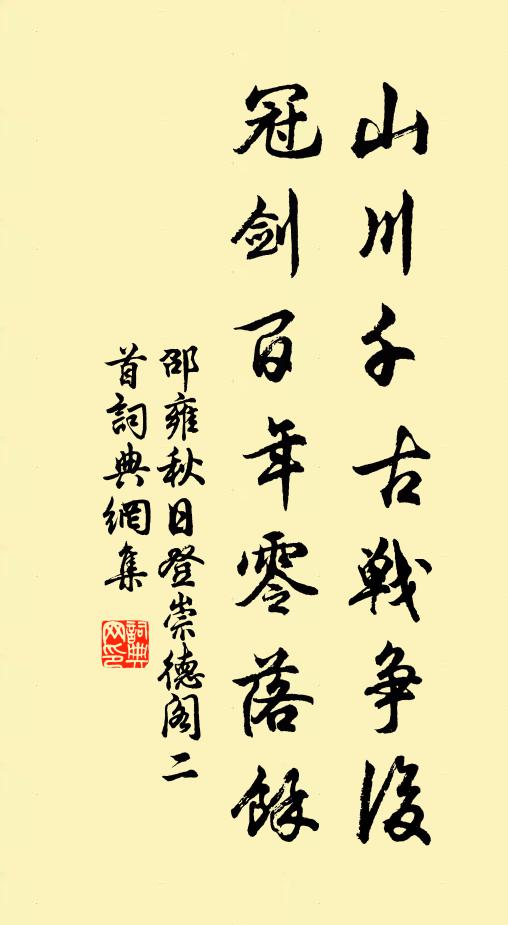 山川千古戦争後
冠剑百年零落餘
邵雍秋日登崇德阁二
首詞典網集
詞典
网印